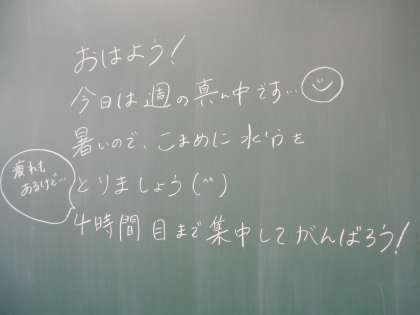 おはよう!
今日は週の真ん中です…
暑いので、こまめに水分を
とりましょう(^^)
疲れも
あるけど…
4時間目まで集中してがんばろう!